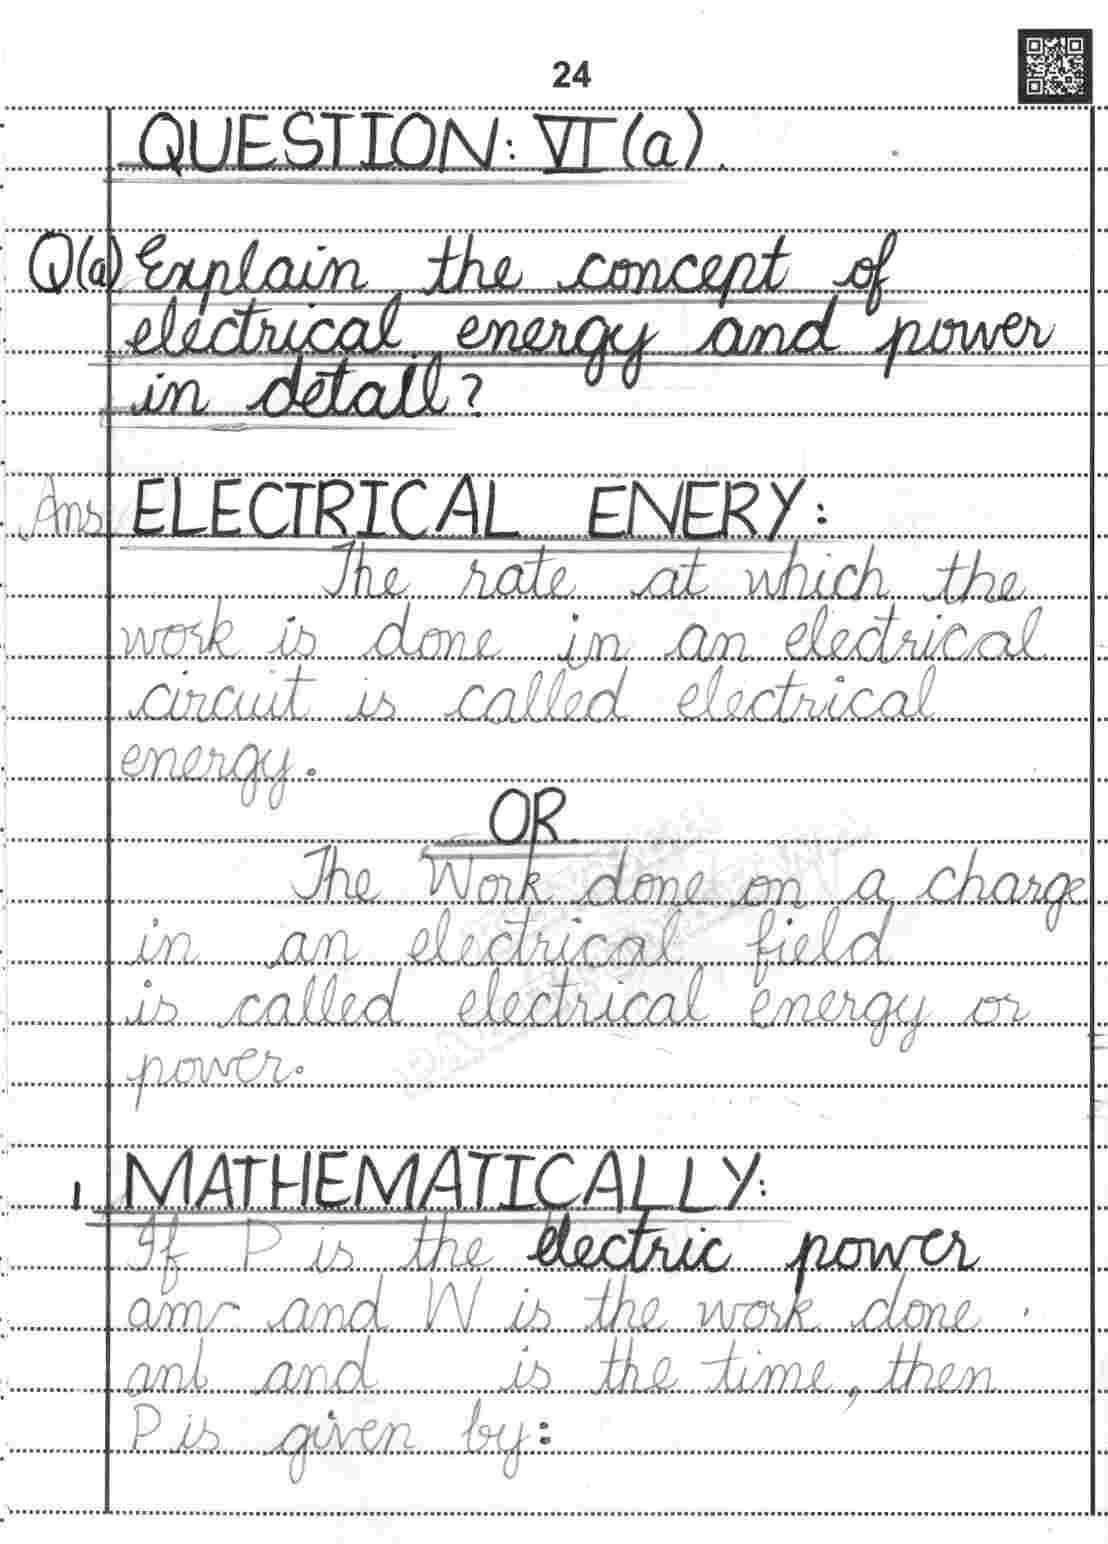 24
QUESTION: VI (a).
Q(a) Explain the concept of
electrical energy and power
in detail?
Ans ELECTRICAL ENERY:
The rate at which the
work is done in an electrical
circuit is called electrical
energy.
OR
The Work done on a charge
in an electrical field
is called electrical energy or
power.
1 MATHEMATICALLY:
If P is the electric power
am and W is the work done
and is the time, then
P is given by: